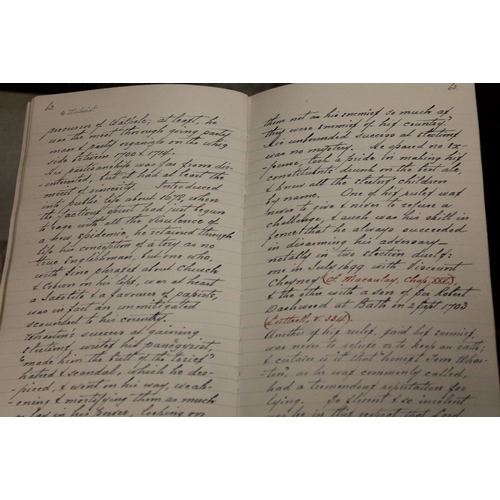 62
precursor of Walpole; at least, he
was the most through going party
man & party organizer on the whig
side between 1700 & 1714.
His partisanship was far from dis-
interested, but it had at least the
merit of sincerity. Introduced
into public life about 1679, when
the factions spirit had just begun
to rage with all the virulence of
a new epidemic, he retained through
life his conception of a tory as no
true Englishman, but one who,
with fine phrases about Church
& Crown on his lips, was at heart
a Satellite & a favourer of papists,
was in fact an unmitigated
scoundrel to his country.
success at gaining
elections, writes his panegyrist
made him the butt of the Tories'
hatred & scandal, which he des-
pised, & went on his way, weak-
ening & mortifying them as much
as lay in his power, looking on
63
them not as his enemies so much as
they were enemies of his country."
His unbounded success at elections
was no mystery. He spared no ex-
pense, took a pride in making his
constituents drunk on the best ale,
& knew all the electors' children
by name. One of his rules was
never to give & never to refuse a
challenge, & such was his skill in
fence that he always succeeded
in disarming his adversary—
notably in two election duels:
one in July 1699 with Viscount
Cheyney (cf Macaulay, Chap XXV.)
& the other with a son of Sir Robert
Dashwood at Bath in Sept 1703
(Luttrell V. 334).
Another of his rules, said his enemies,
was never to refuse or to keep an oath,
& certain is it that "honest Tom Whar-
ton" as he was commonly called,
had a tremendous reputation for
lying. So silent & so insolent
was he in this respect that Lord